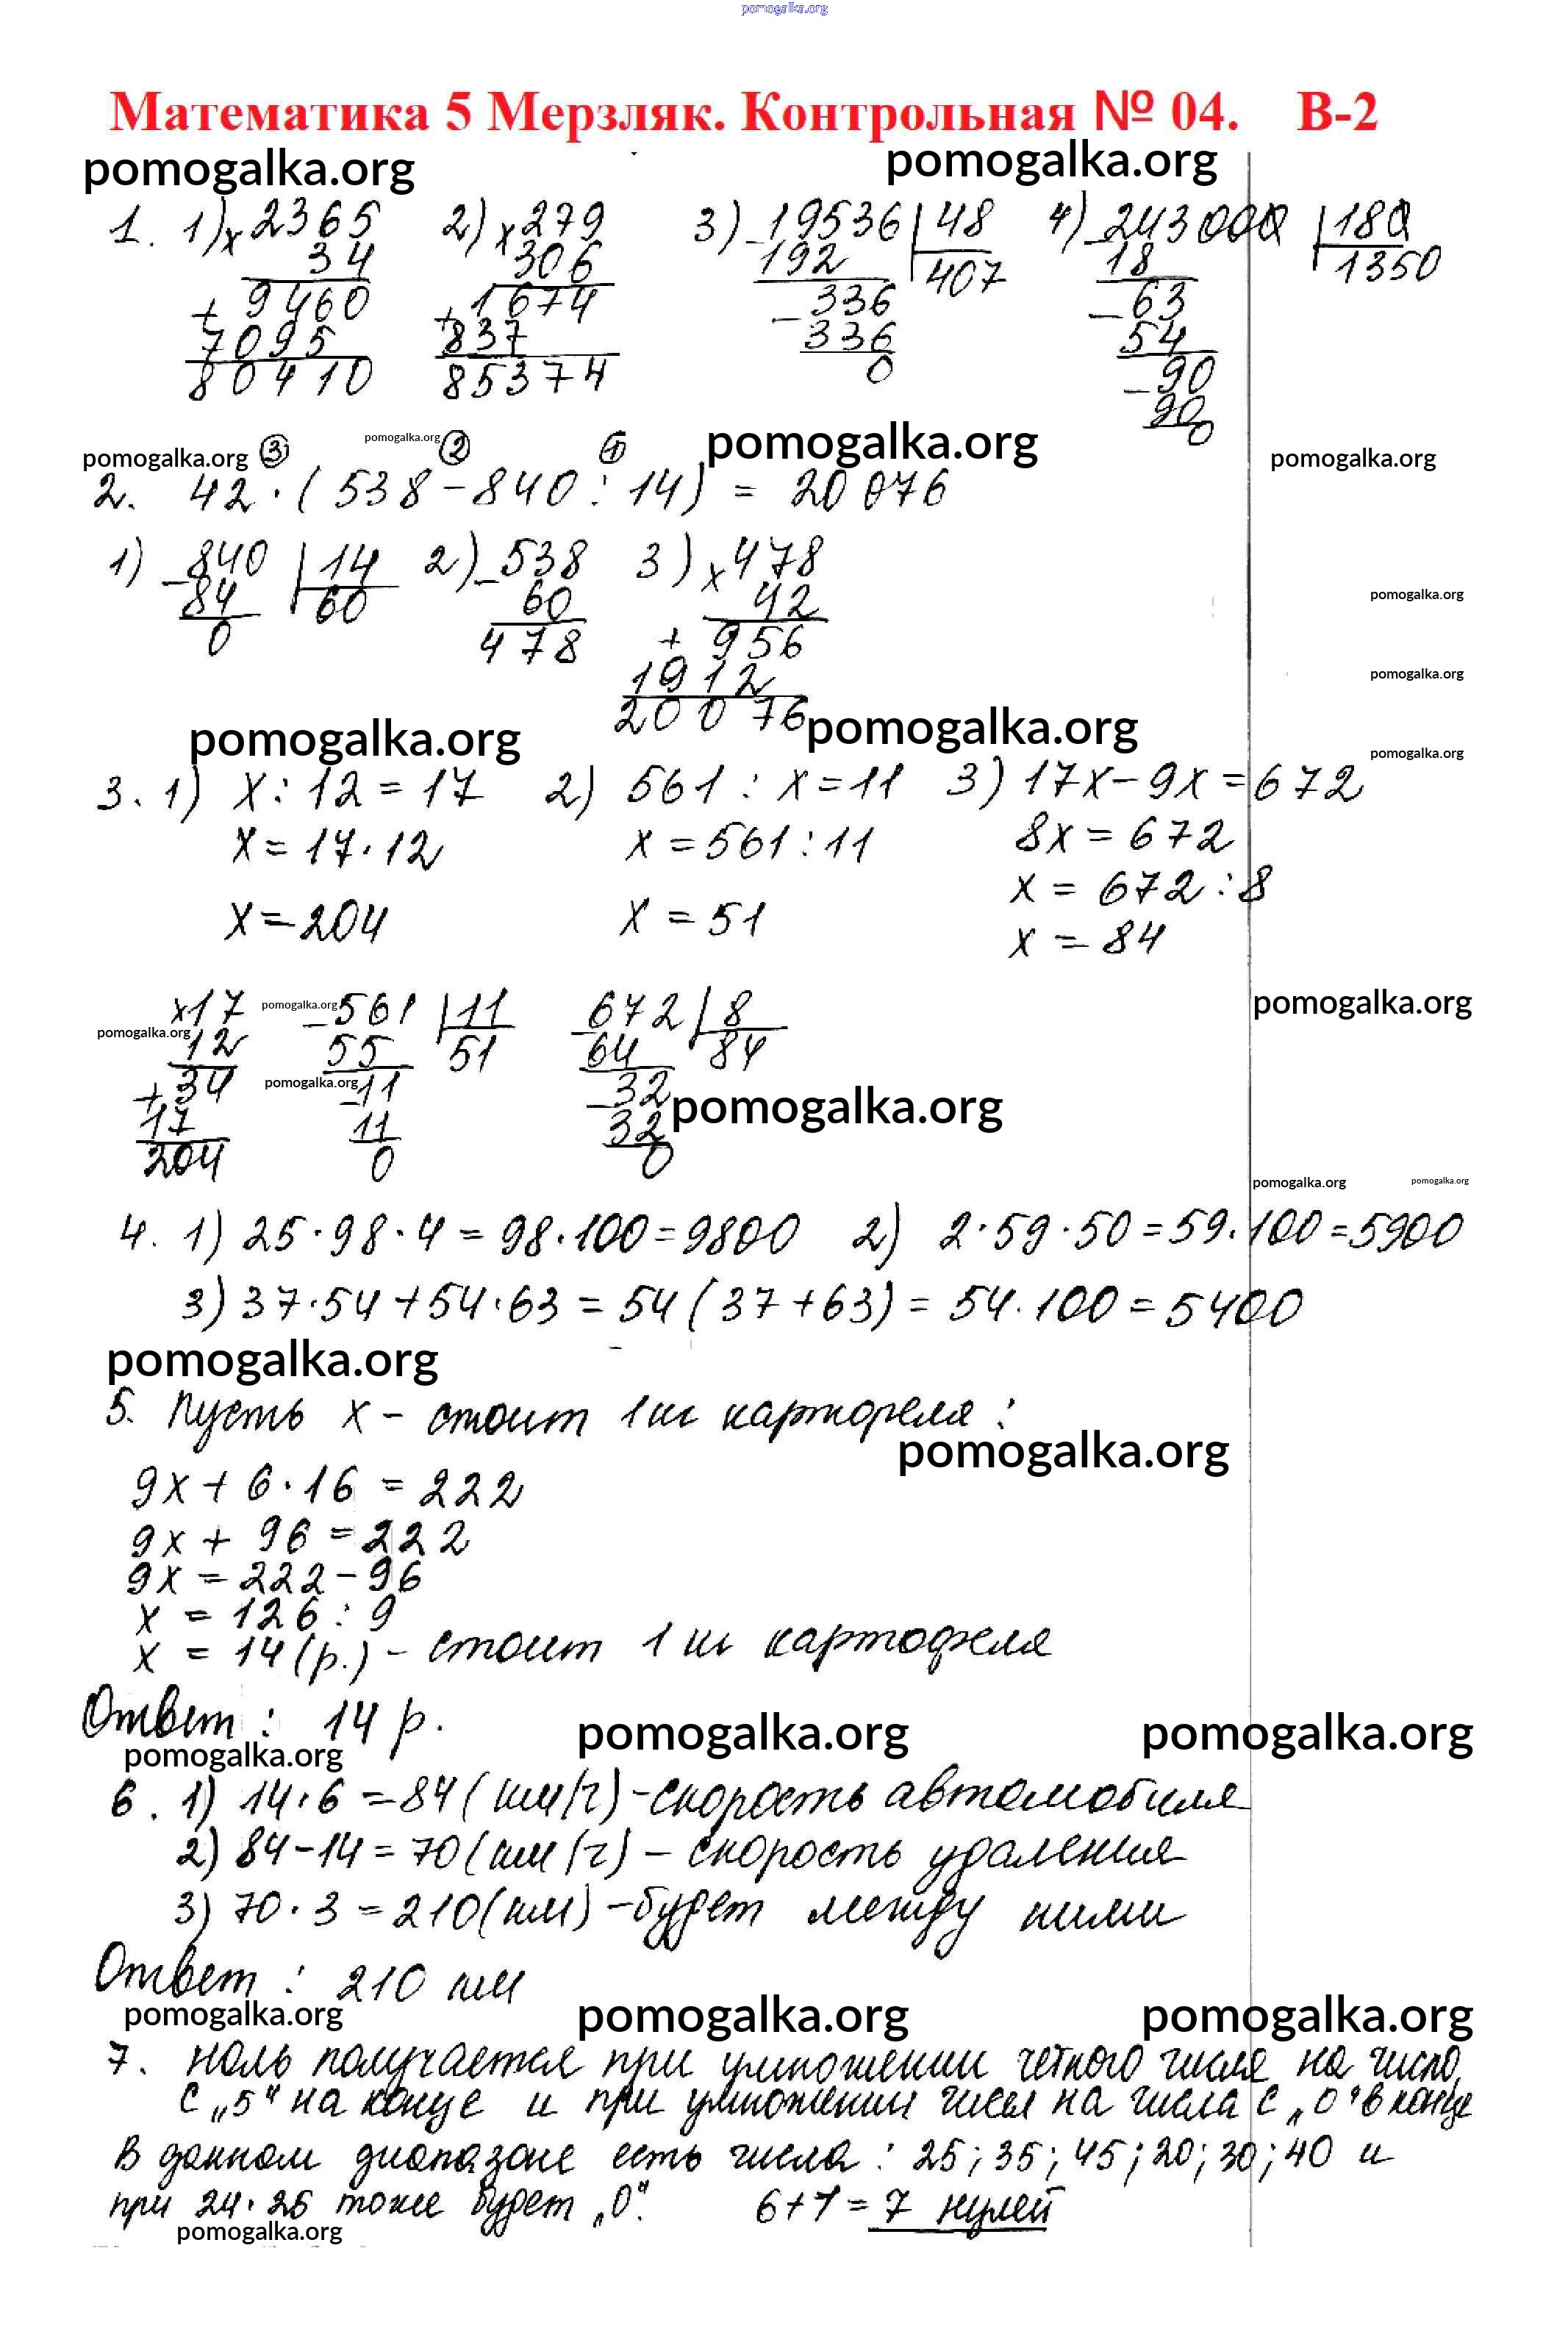 pomogalka.org
Математика 5 Мерзляк. Контрольная № 04. В-2
pomogalka.org pomogalka.org
1. 1) × 2365 2) × 279 3) – 19536 | 48 4) – 243000 | 180
34 306 192 407 18 1350
+ 9460 + 1674 – 336 – 63
7095 837 336 54
80410 85374 0 – 90
90
0
pomogalka.org ③ pomogalka.org ② ① pomogalka.org pomogalka.org
2. 42 · (538 – 840 : 14) = 20076
1) – 840 | 14 2) – 538 3) × 478
84 60 60 42 pomogalka.org
0 478 + 956
1912 pomogalka.org
20076
pomogalka.org pomogalka.org pomogalka.org
3. 1) x : 12 = 17 2) 561 : x = 11 3) 17x – 9x = 672
x = 17 · 12 x = 561 : 11 8x = 672
x = 672 : 8
x = 204 x = 51 x = 84
× 17 pomogalka.org – 561 | 11 – 672 | 8 pomogalka.org
pomogalka.org 12 55 51 64 84
+ 34 pomogalka.org – 11 – 32 pomogalka.org
17 11 32
204 0 0
pomogalka.org pomogalka.org
4. 1) 25 · 98 · 4 = 98 · 100 = 9800 2) 2 · 59 · 50 = 59 · 100 = 5900
3) 37 · 54 + 54 · 63 = 54 (37 + 63) = 54 · 100 = 5400
pomogalka.org
5. Пусть x – стоит 1 кг картофеля :
pomogalka.org
9x + 6 · 16 = 222
9x + 96 = 222
9x = 222 – 96
x = 126 : 9
x = 14 (р.) – стоит 1 кг картофеля
Ответ : 14 р.
pomogalka.org pomogalka.org pomogalka.org
6. 1) 14 · 6 = 84 (км/ч) – скорость автомобиля
2) 84 – 14 = 70 (км/ч) – скорость удаления
3) 70 · 3 = 210 (км) – будет между ними
Ответ : 210 км
pomogalka.org pomogalka.org pomogalka.org
7. Ноль получается при умножении четного числа на число
с „5" на конце и при умножении чисел на числа с „0" в конце
В данном диапазоне есть числа : 25; 35; 45; 20; 30; 40 и
при 24 · 25 тоже будет „0". 6 + 1 = 7 нулей
pomogalka.org